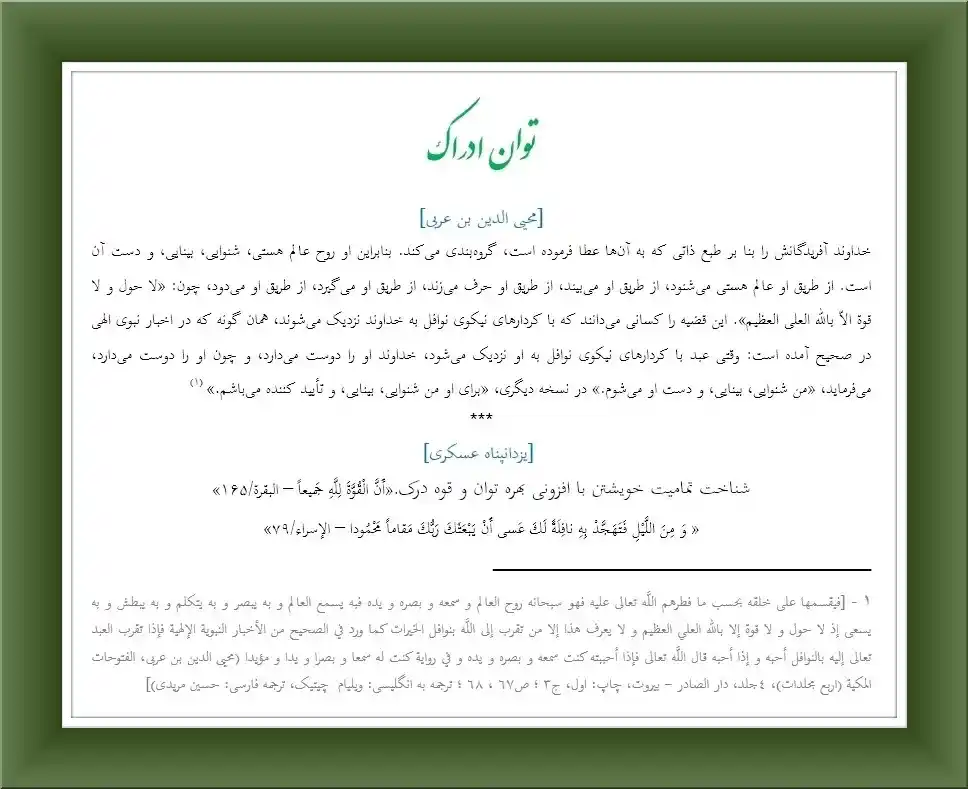 توان ادراک
[محیی الدین بن عربی]
خداوند آفریدگانش را بنا بر طبع ذاتی که به آن‌ها عطا فرموده است، گروه‌بندی می‌کند. بنابراین او روح عالم هستی، شنوایی، بینایی، و دست آن
است. از طریق او عالم هستی می‌شنود، از طریق او می‌بیند، از طریق او حرف می‌زند، از طریق او می‌گیرد، از طریق او می‌دود، چون: «لا حول و لا
قوة الاّ بالله العلی العظیم». این قضیه را کسانی می‌دانند که با کردارهای نیکوی نوافل به خداوند نزدیک می‌شوند، همان گونه که در اخبار نبوی الهی
در صحیح آمده است: وقتی عبد با کردارهای نیکوی نوافل به او نزدیک می‌شود، خداوند او را دوست می‌دارد، و چون او را دوست می‌دارد،
می‌فرماید، «من شنوایی، بینایی، و دست او می‌شوم.» در نسخه دیگری، «برای او من شنوایی، بینایی، و تأیید کننده می‌باشم.» (۱)
***
[یزدانپناه عسکری]
شناخت تمامیت خویشتن با افزونی بهره توان و قوه درک.«أَنَّ الْقُوَّةَ لِلَّهِ جَميعاً – البقرة/۱۶۵»
« وَ مِنَ اللَّيْلِ فَتَهَجَّدْ بِهِ نافِلَةً لَكَ عَسى أَنْ يَبْعَثَكَ رَبُّكَ مَقاماً مَحْمُودا – الإسراء/۷۹»
۱ - [فيقسمها على خلقه بحسب ما فطرهم اللَّه تعالى عليه فهو سبحانه روح العالم و سمعه و بصره و يده فبه يسمع العالم و به يبصر و به يتكلم و به يبطش و به
يسعى إذ لا حول و لا قوة إلا بالله العلي العظيم و لا يعرف هذا إلا من تقرب إلى اللَّه بنوافل الخيرات كما ورد في الصحيح من الأخبار النبوية الإلهية فإذا تقرب العبد
تعالى إليه بالنوافل أحبه و إذا أحبه قال اللَّه تعالى فإذا أحببته كنت سمعه و بصره و يده و في رواية كنت له سمعا و بصرا و يدا و مؤيدا (محیی الدین بن عربی، الفتوحات
المکیة (اربع مجلدات)، ٤جلد، دار الصادر – بیروت، چاپ: اول، ج۳ ؛ ص۶۷ ، ۶۸ ؛ ترجمه به انگلیسی: ویلیام چیتیک، ترجمه فارسی: حسین مریدی)]